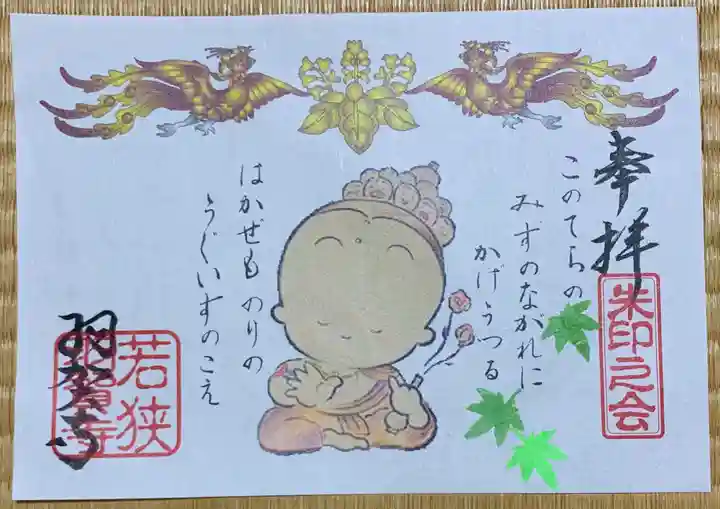 奉拝
朱印之会
このてらの
みずのながれに
かげうつる
はかぜも のりの
うぐいすのこえ
羽賀寺
若狭
羽賀寺